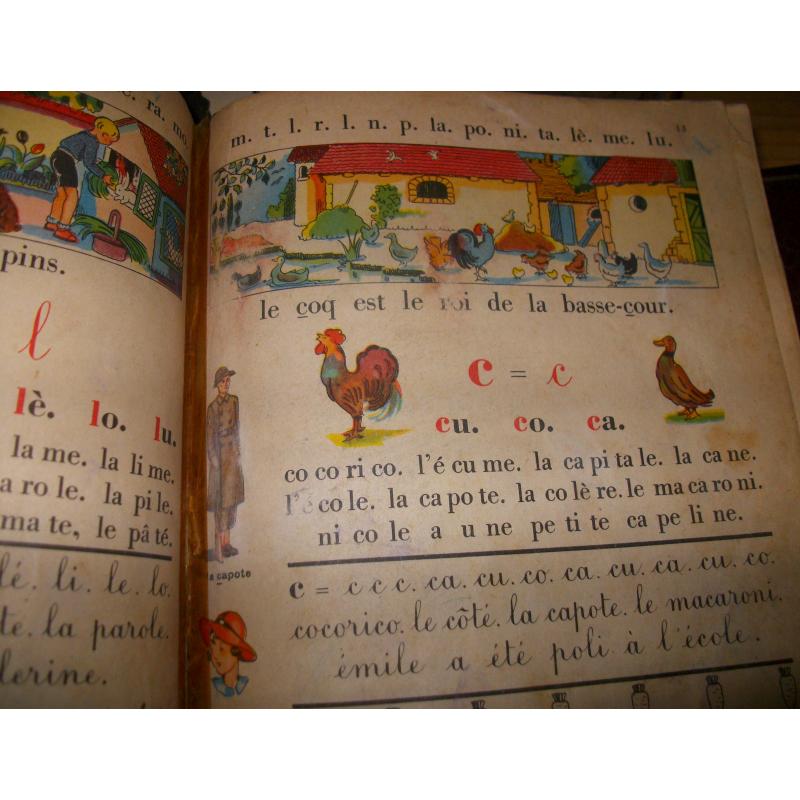 ra. mo
pins.
l
lè. lo. lu.
la me. la li me.
a ro le. la pi le.
ma te, le pâ té.
lé. li. le. lo.
te. la parole.
lerine.
m. t. l. r. l. n. p. la. po. ni. ta. lè. me. lu. 13
le coq est le roi de la basse-cour.
c = c
cu. co. ca.
co co ri co. l'é cu me. la ca pi ta le. la ca ne.
l'é co le. la ca po te. la co lè re. le ma ca ro ni.
ni co le a u ne pe ti te ca pe li ne.
a capote
c = c c c. ca. cu. co. ca. cu. ca. cu. co.
cocorico. le côté. la capote. le macaroni.
émile a été poli à l'école.